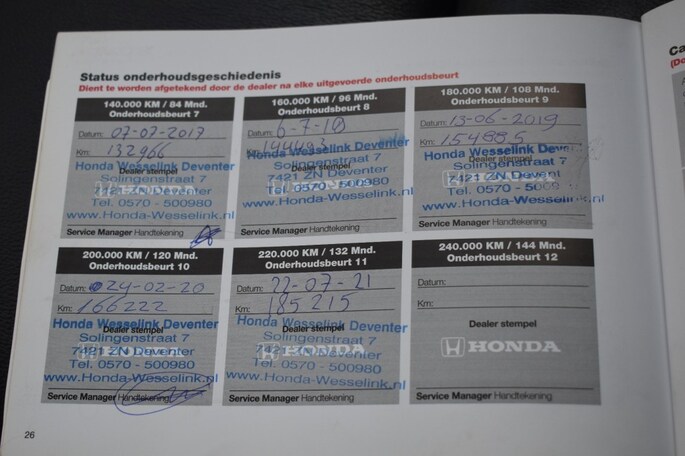 Status onderhoudsgeschiedenis
Dient te worden afgetekend door de dealer na elke uitgevoerde onderhoudsbeurt
140.000 KM / 84 Mnd.
Onderhoudsbeurt 7
Datum: 07-07-2017
Km: 132966
Dealer stempel
Honda Wesselink Deventer
Solingenstraat 7
7421 ZN Deventer
Tel. 0570 - 500980
www.Honda-Wesselink.nl
HONDA
Service Manager Handtekening
160.000 KM / 96 Mnd.
Onderhoudsbeurt 8
Datum: 6-7-18
Km: 144493
Dealer stempel
Honda Wesselink Deventer
Solingenstraat 7
7421 ZN Deventer
Tel. 0570 - 500980
www.Honda-Wesselink.nl
HONDA
Service Manager Handtekening
180.000 KM / 108 Mnd.
Onderhoudsbeurt 9
Datum: 13-06-2019
Km: 154885
Dealer stempel
Honda Wesselink Deven
Solingenstraat 7
7421 ZN Deventer
Tel. 0570 - 5009
www.Honda-Wesselink.nl
HONDA
Service Manager Handtekening
200.000 KM / 120 Mnd.
Onderhoudsbeurt 10
Datum: 24-02-20
Km: 166222
Dealer stempel
Honda Wesselink Deventer
Solingenstraat 7
7421 ZN Deventer
Tel. 0570 - 500980
www.Honda-Wesselink.nl
HONDA
Service Manager Handtekening
220.000 KM / 132 Mnd.
Onderhoudsbeurt 11
Datum: 22-07-21
Km: 185215
Dealer stempel
Honda Wesselink Deventer
Solingenstraat 7
7421 ZN Deventer
Tel. 0570 - 500980
www.Honda-Wesselink.nl
HONDA
Service Manager Handtekening
240.000 KM / 144 Mnd.
Onderhoudsbeurt 12
Datum:
Km:
Dealer stempel
HONDA
Service Manager Handtekening
26
Ca
(Do